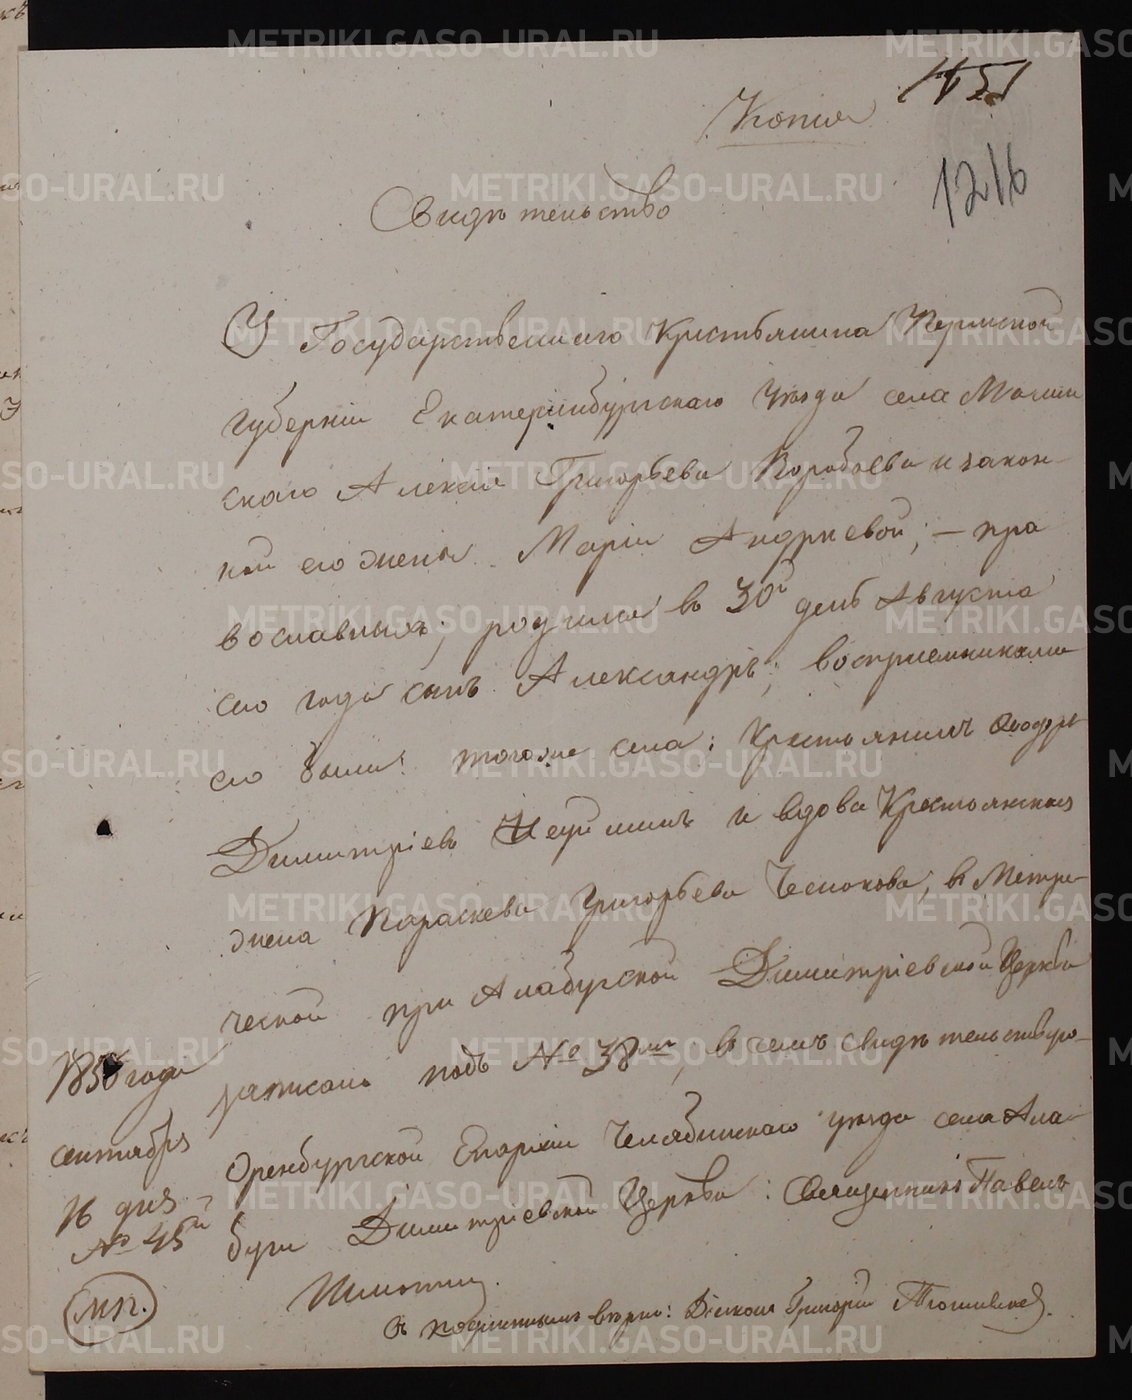 Копия
1216
Свидѣтельство
У Государственнаго Крестьянина Пермской
Губерніи Екатеринбургскаго уѣзда села
скаго Алексія Григорьева Воробьева и закон-
ной его жены Маріи Андреевой; – пра
вославныхъ; родился въ 30й день Августа
сего года сынъ Александръ; воспріемниками
его были: того же села: Крестьянинъ Ѳеодоръ
Димитріевъ и вдова Крестьянская
жена Параскева Григорьева Чеснокова, въ Метри-
ческой при Алабугской Димитріевской Церкви
записанъ подъ № 38мъ, въ чемъ свидѣтельствую-
Оренбургской Епархіи Челябинскаго уѣзда села Ала-
буги Димитріевской Церкви: Священникъ Павелъ
Съ подлиннымъ вѣрно: Діаконъ Григорій
1856 года
сентября
16 дня
№ 45й
М.П.
METRIKI.GASO-URAL.RU